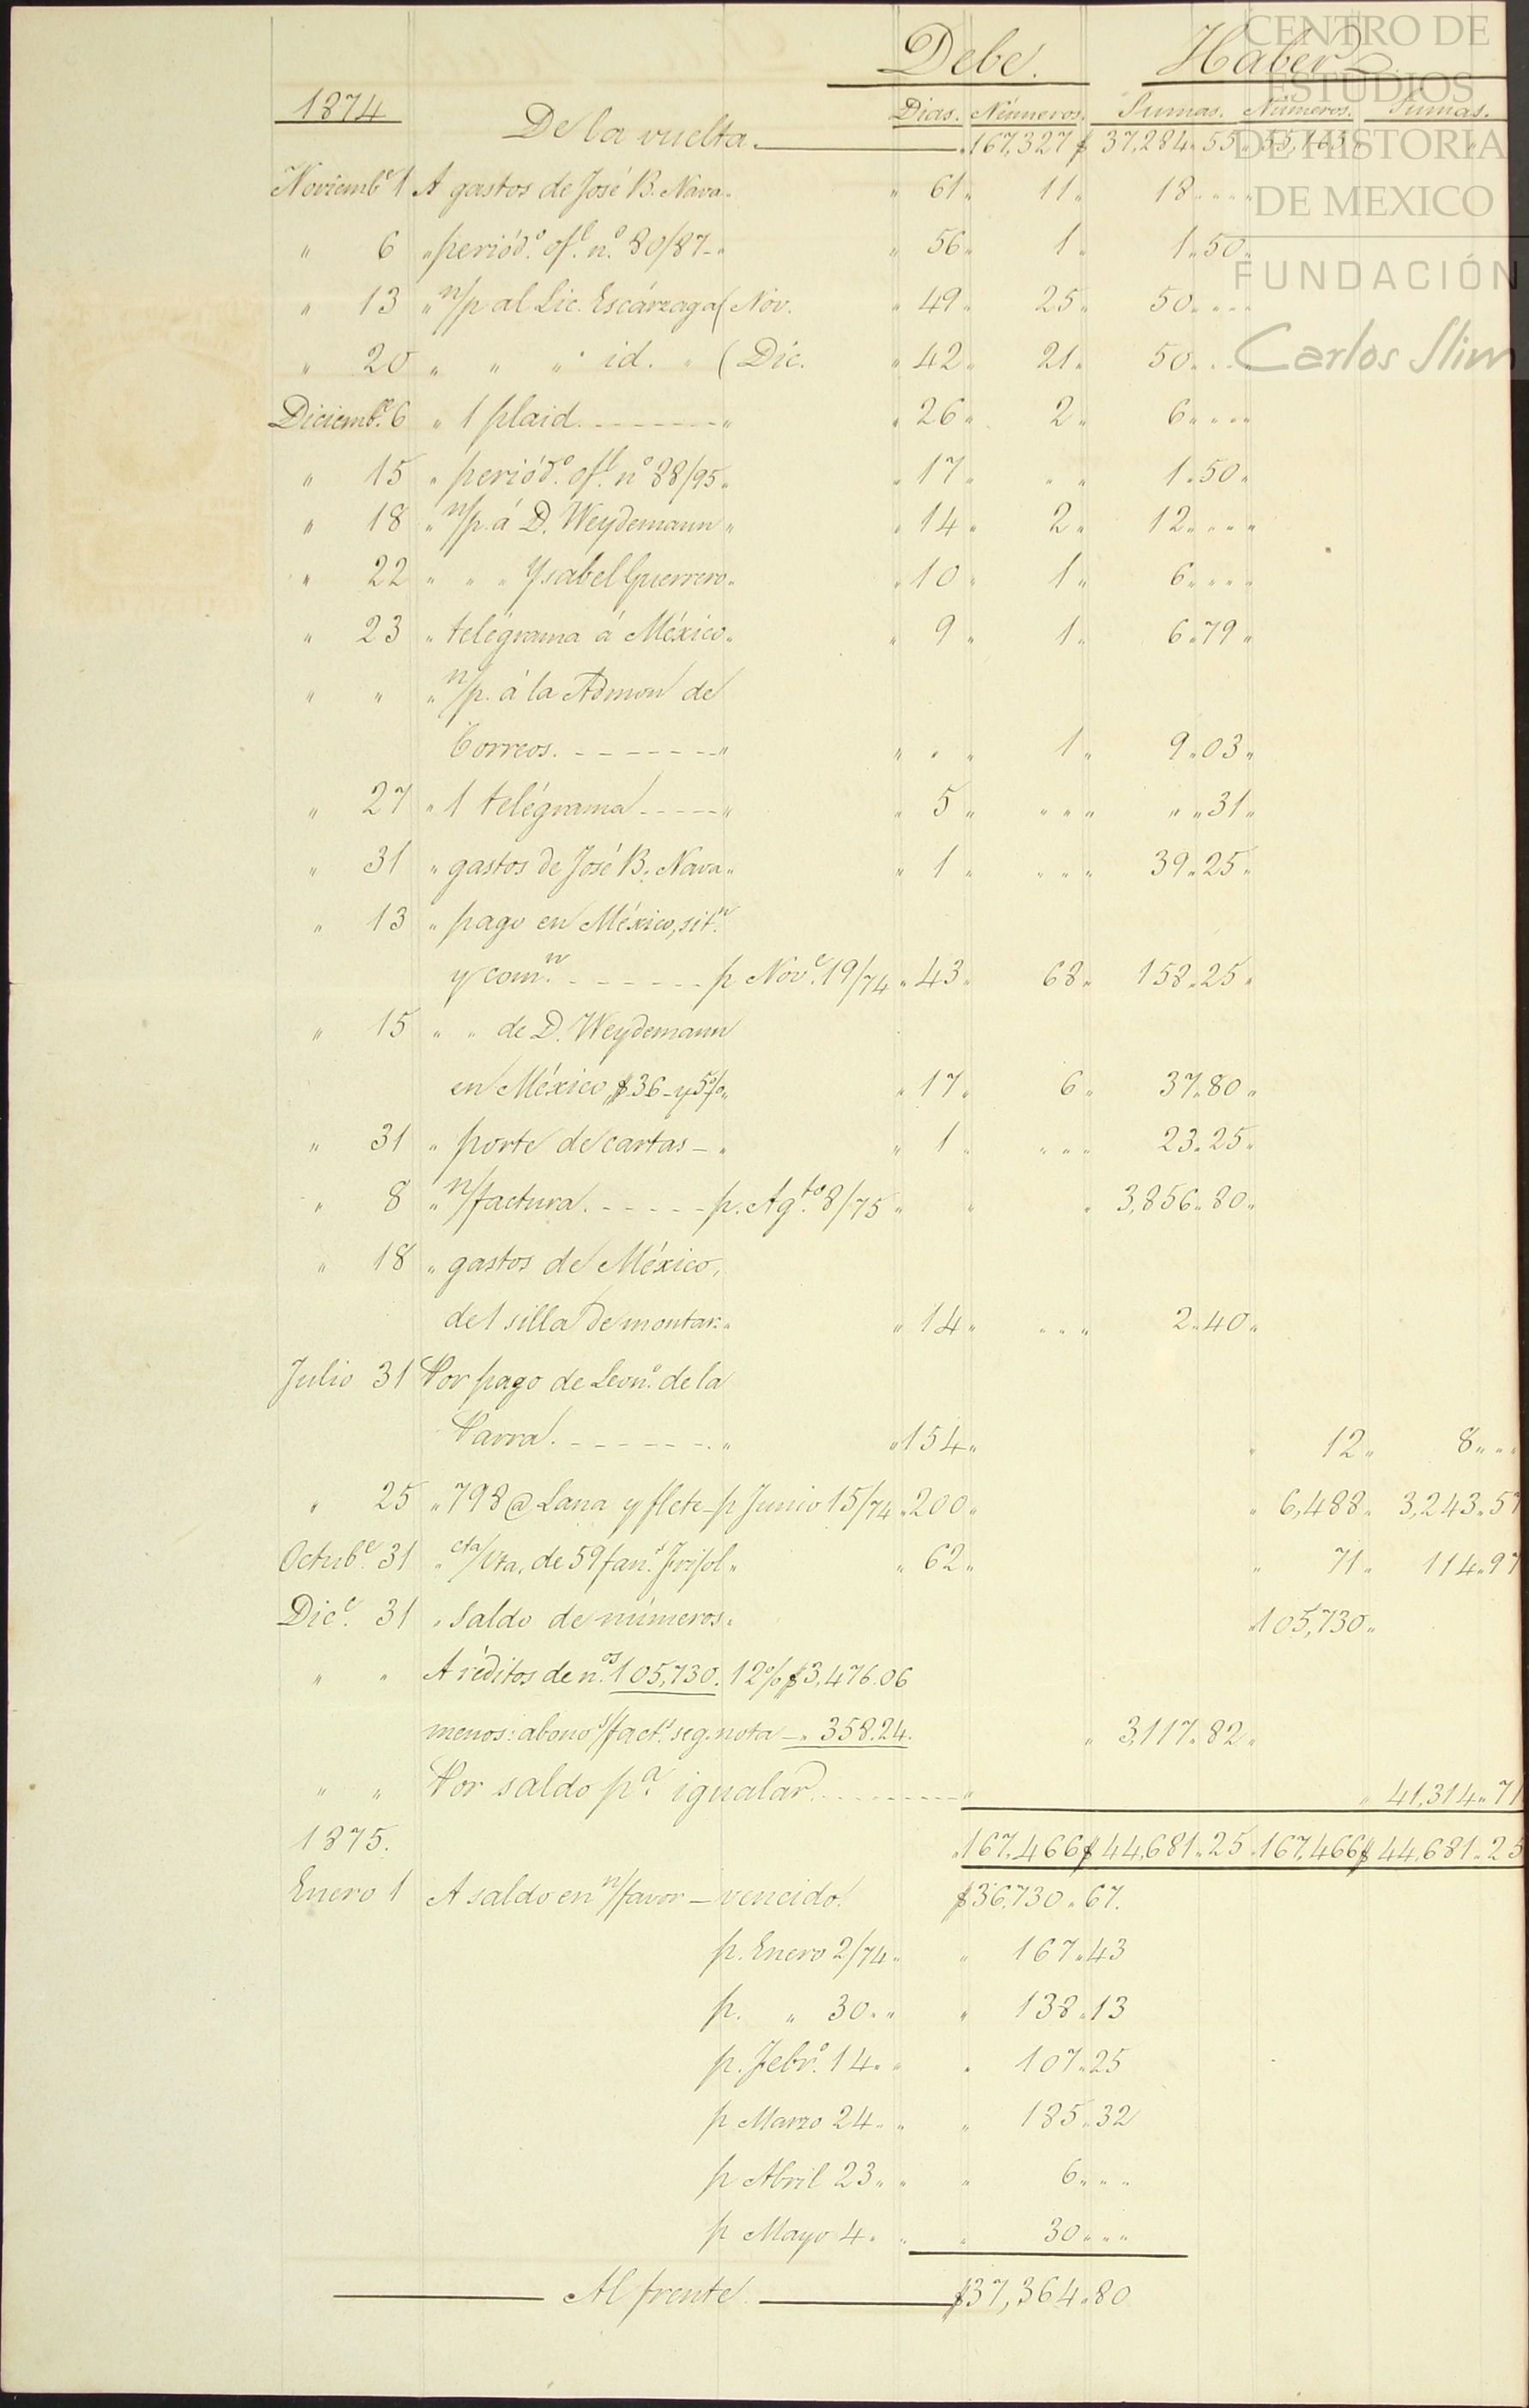 CENTRO DE
ESTUDIOS
DE HISTORIA
DE MEXICO
FUNDACIÓN
Carlos Slim
Debe. Haber
1874 Dias. Números. Sumas. Números. Sumas.
De la vuelta. " 167,327 $ 37,284 " 55 "
Noviembe 1 A gastos de José B. Nava " " 61 " 11 " 18 " " " "
" 6 " periódo. ofl. no. 80/87 - " " 56 " 1 " 1 " 50 "
" 13 " n/p al Lic. Escárzaga ( Nov. " 49 " 25 " 50 " " " "
" 20 " " " " id. " ( Dic. " 42 " 21 " 50 " " " "
Diciembe. 6 " 1 plaid. - - - - - - - " " 26 " 2 " 6 " " " "
" 15 " periódo. ofl. no 88/95 " " 17 " " " 1 " 50 "
" 18 " n/p. á D. Weydemann " " 14 " 2 " 12 " " " "
" 22 " " " Ysabel Guerrero " " 10 " 1 " 6 " " " "
" 23 " telégrama á México " " 9 " 1 " 6 " 79 "
" " " n/p. á la Admon de
Correos. - - - - - - - " " " " 1 " 9 " 03 "
" 27 " 1 telégrama - - - - - " " 5 " " " " " " 31 "
" 31 " gastos de José B. Nava " " 1 " " " " 39 " 25 "
" 13 " pago en México, sitn.
y comn. - - - - - - p Nove. 19/74 " 43 " 68 " 158 " 25 "
" 15 " " de D. Weydemann
en México, $ 36 - y 5% " " 17 " 6 " 37 " 80 "
" 31 " porte de cartas - " " 1 " " " " 23 " 25 "
" 8 " n/factura. - - - - - p. Agto. 8/75 " " " 3,856 " 80 "
" 18 " gastos de México,
de 1 silla de montar. " " 14 " " " " 2 " 40 "
Julio 31 Por pago de Leono. de la
Parra. - - - - - - - " " 154 " " 12 " 8 " " "
" 25 " 798 @ Lana y flete - p Junio 15/74 " 200 " " 6,488 " 3,243 " 57
Octube. 31 " cta/Vta, de 59 fans. Frijol " " 62 " " 71 " 114 " 97
Dice. 31 " Saldo de números. " 105,730 "
" " A réditos de nos. 105,730. 12% $ 3,476.06
menos: abono s/facts. seg. nota - " 358.24. " 3,117 " 82 "
" " Por saldo pa. igualar. - - - - - - - - - " " 41,314 " 71
1875. " 167,466 $ 44,681 " 25 " 167,466 $ 44,681 " 25
Enero 1 A saldo en n/favor - vencido. $ 36,730 " 67.
p. Enero 2/74 " " 167 " 43
p. " 30 " " " 138 " 13
p. Febro. 14 " " " 107 " 25
p Marzo 24 " " " 185 " 32
p Abril 23 " " " 6 " " "
p Mayo 4 " " " 30 " " "
Al frente. $ 37,364 " 80